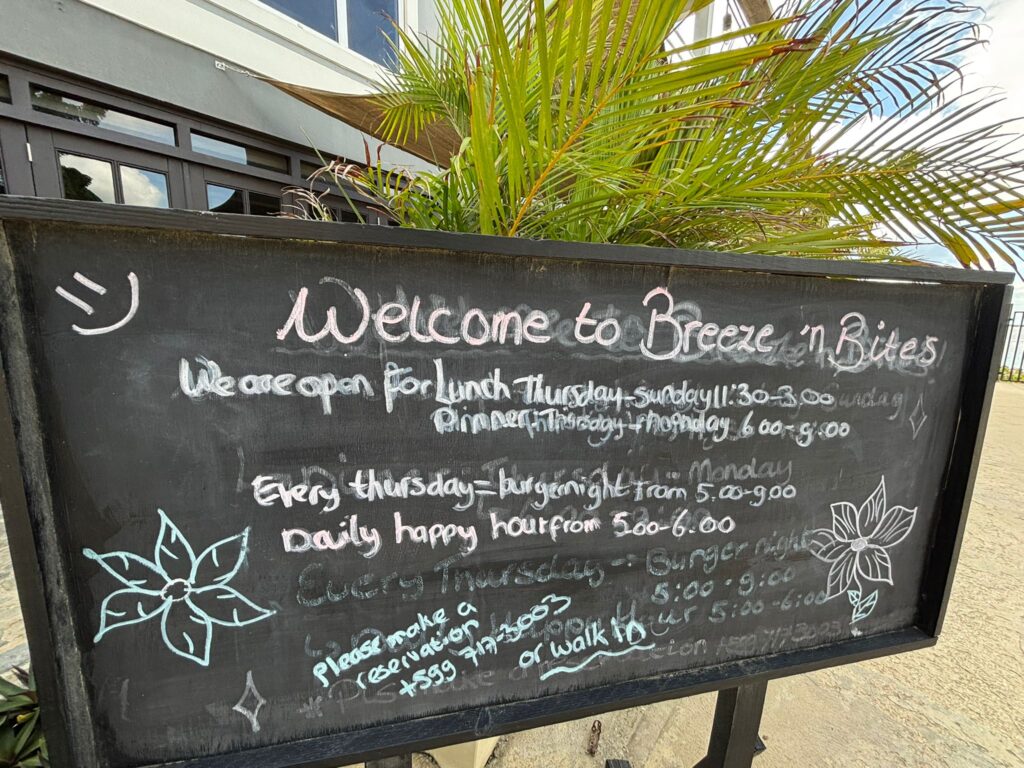 Welcome to Breeze 'n Bites
We are open for Lunch Thursday-sunday 11:30-3.00
Dinner Thursday-Monday 6.00-9:00
Every thursday=burgernight from 5.00-9.00
Daily happy hour from 5.00-6.00
Every Thursday - Burger night
5:00 - 9:00
Hour 5:00-6:00
please make a
reservation
+599 717-3003
or walk in